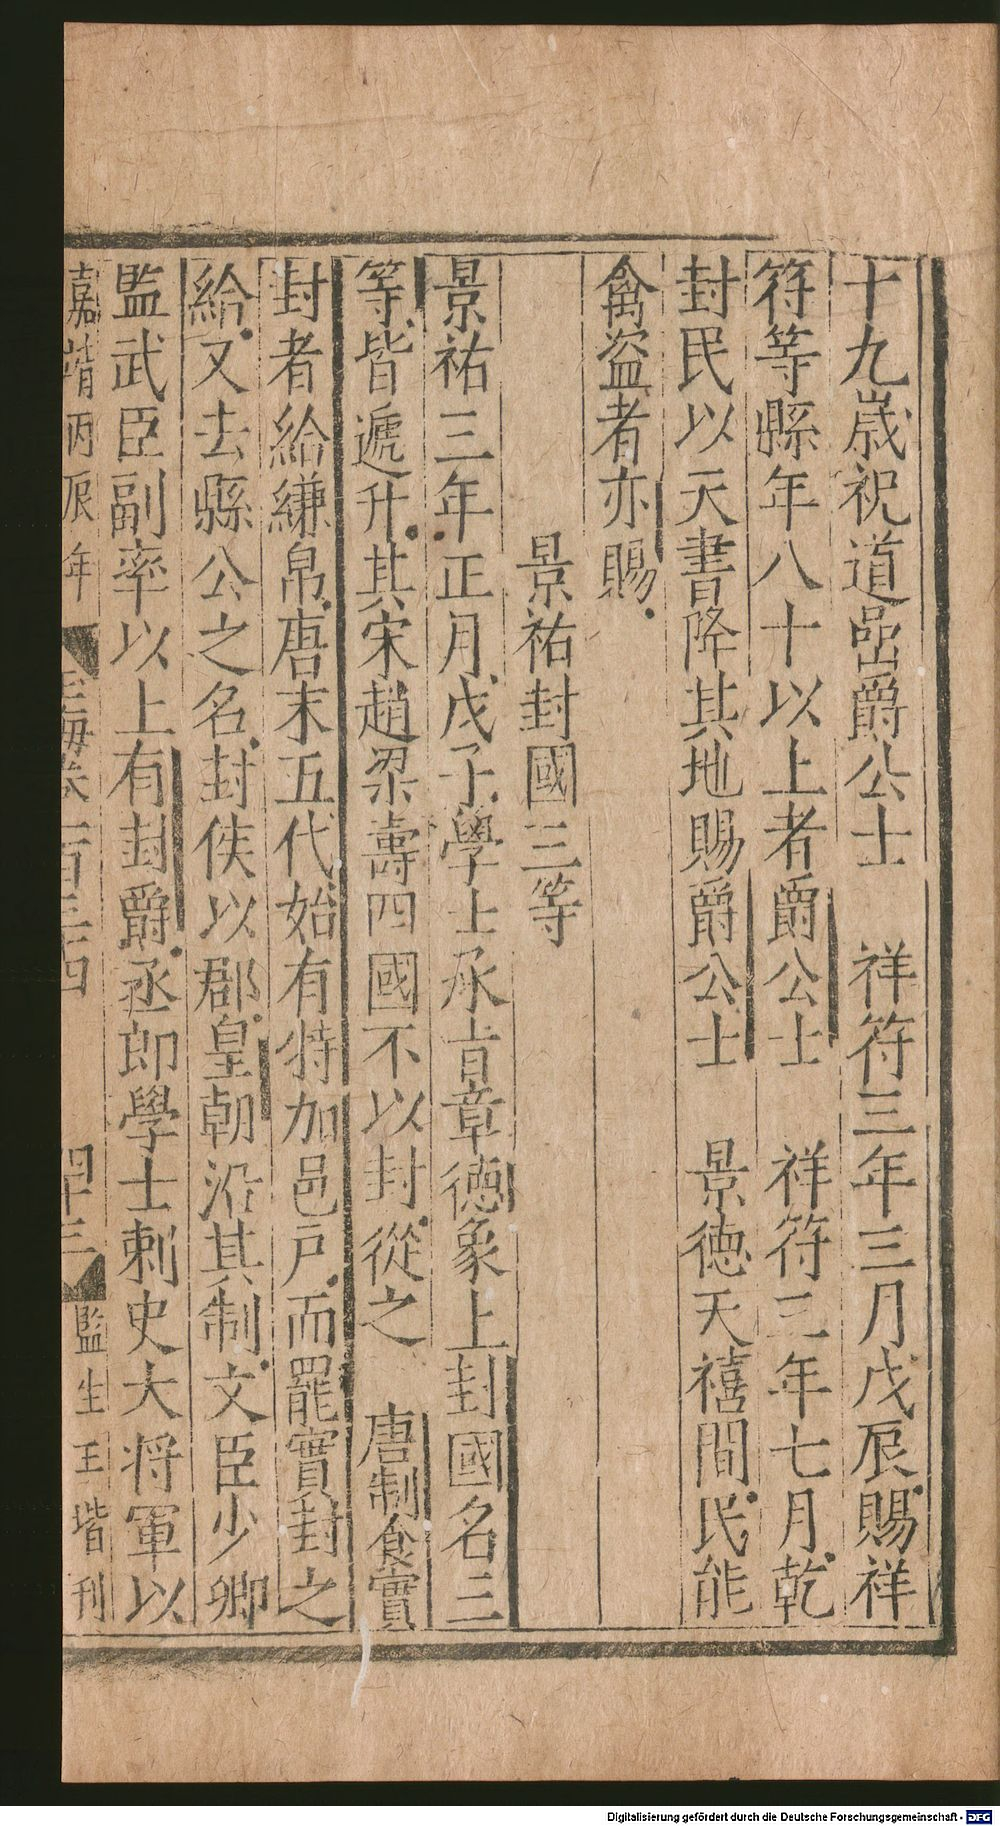 十九歳祝道嵒爵公士　祥符三年三月戊辰賜祥
符等縣年八十以上者爵公士　祥符三年七月乾
封民以天書降其地賜爵公士　景德天禧間民能
禽盗者亦賜
景祐封國三等
景祐三年正月戊子學士承旨章德象上封國名三
等皆遞升其宋趙梁壽四國不以封從之　唐制食實
封者給縑帛唐末五代始有特加邑戸而罷實封之
給又去縣公之名封侯以郡皇朝沿其制文臣少卿
監武臣副率以上有封爵丞郎學士刺史大將軍以
嘉靖丙辰年　玉海卷一百三十四　四十三　監生王堦刊
Digitalisierung gefördert durch die Deutsche Forschungsgemeinschaft - DFG